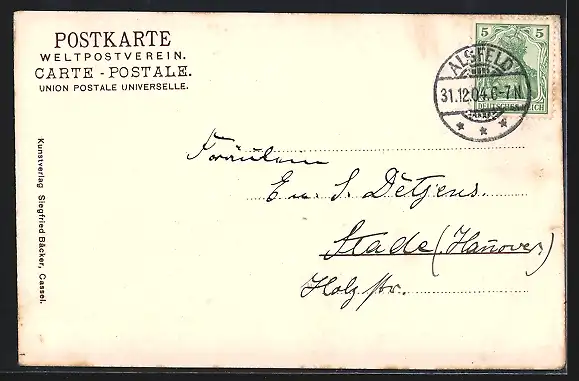 POSTKARTE
WELTPOSTVEREIN.
CARTE - POSTALE.
UNION POSTALE UNIVERSELLE.
5 5
DEUTSCHES REICH
ALSFELD
31.12.04.6-7N.
Fräulein
S. Detjens.
Stade (Hannover)
Holzstr.
Kunstverlag Siegfried Bäcker, Cassel.